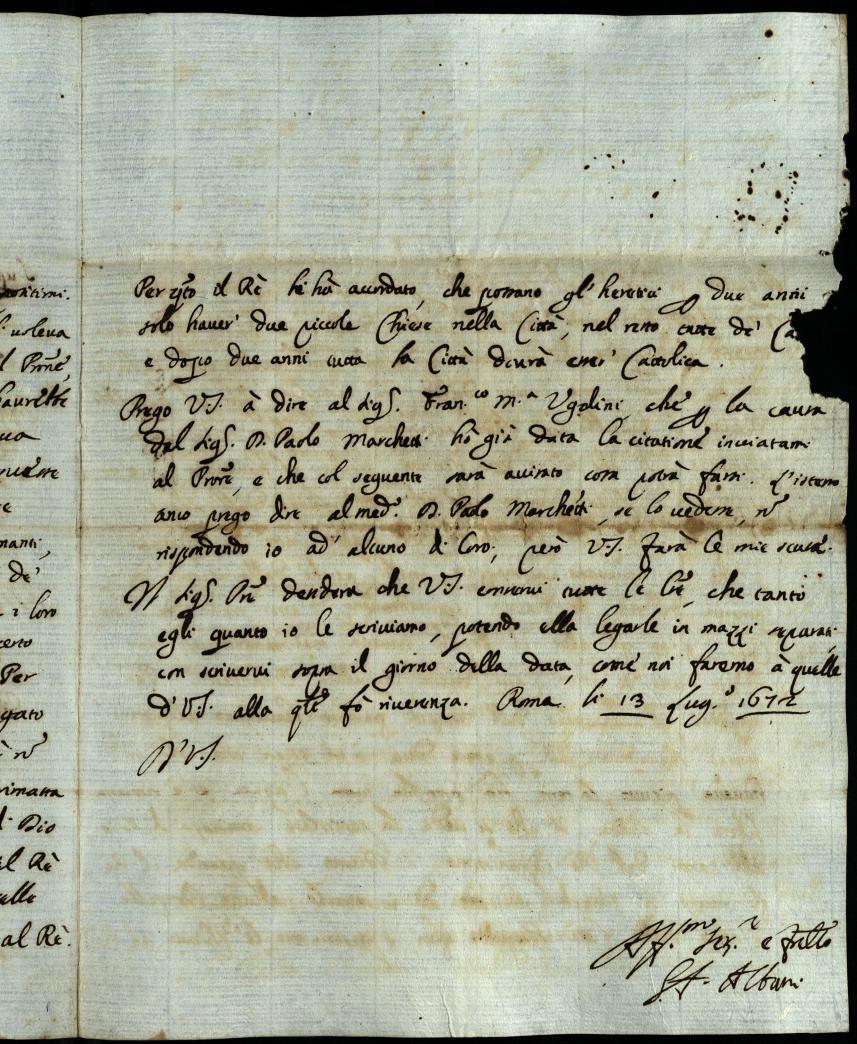 contini.
uoleua
l Prone,
haurebbe
manti,
de'
i loro
certo
Per
gato
rimasta
di Dio
el Rè
elle
al Rè.
Per qsto il Rè li hà accordato, che possano gl'heretici p due anni
solo hauer' due piccole Chiese nella Città, nel resto tutte de' Ca
e dopo due anni tutta la Città dourà esser' Cattolica.
Prego V.S. à dire al Sigr. Fran.co M.a Ugolini, che p la causa
del Sigr. D. Paolo Marchetti hò già data la citatione inuiatami
al Prore, e che col seguente sarà auisato cosa potrà farsi. L'istesso
anco prego dire al med.o D. Paolo Marchetti, se lo uedesse, nō
rispondendo io ad' alcuno di loro, però V.S. farà le mie scuse.
Il Sigr. Pre desidera che V.S. conserui tutte le lre, che tanto
egli quanto io le scriuiamo, potendo ella legarle in mazzi separati,
con scriuerui sopra il giorno della data, come noi faremo à quelle
di V.S. alla qle fò riuerenza. Roma li 13 Lug.o 1672
D'V.S.
Aff.mo Ser.e e frello
G.F. Albani